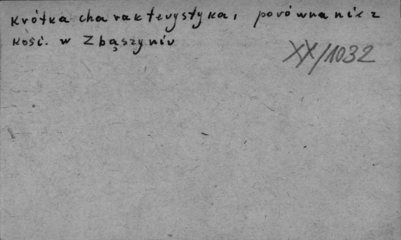 Krótka charakterystyka, porównanie z
kość. w Zbąszyniu
XX/1032